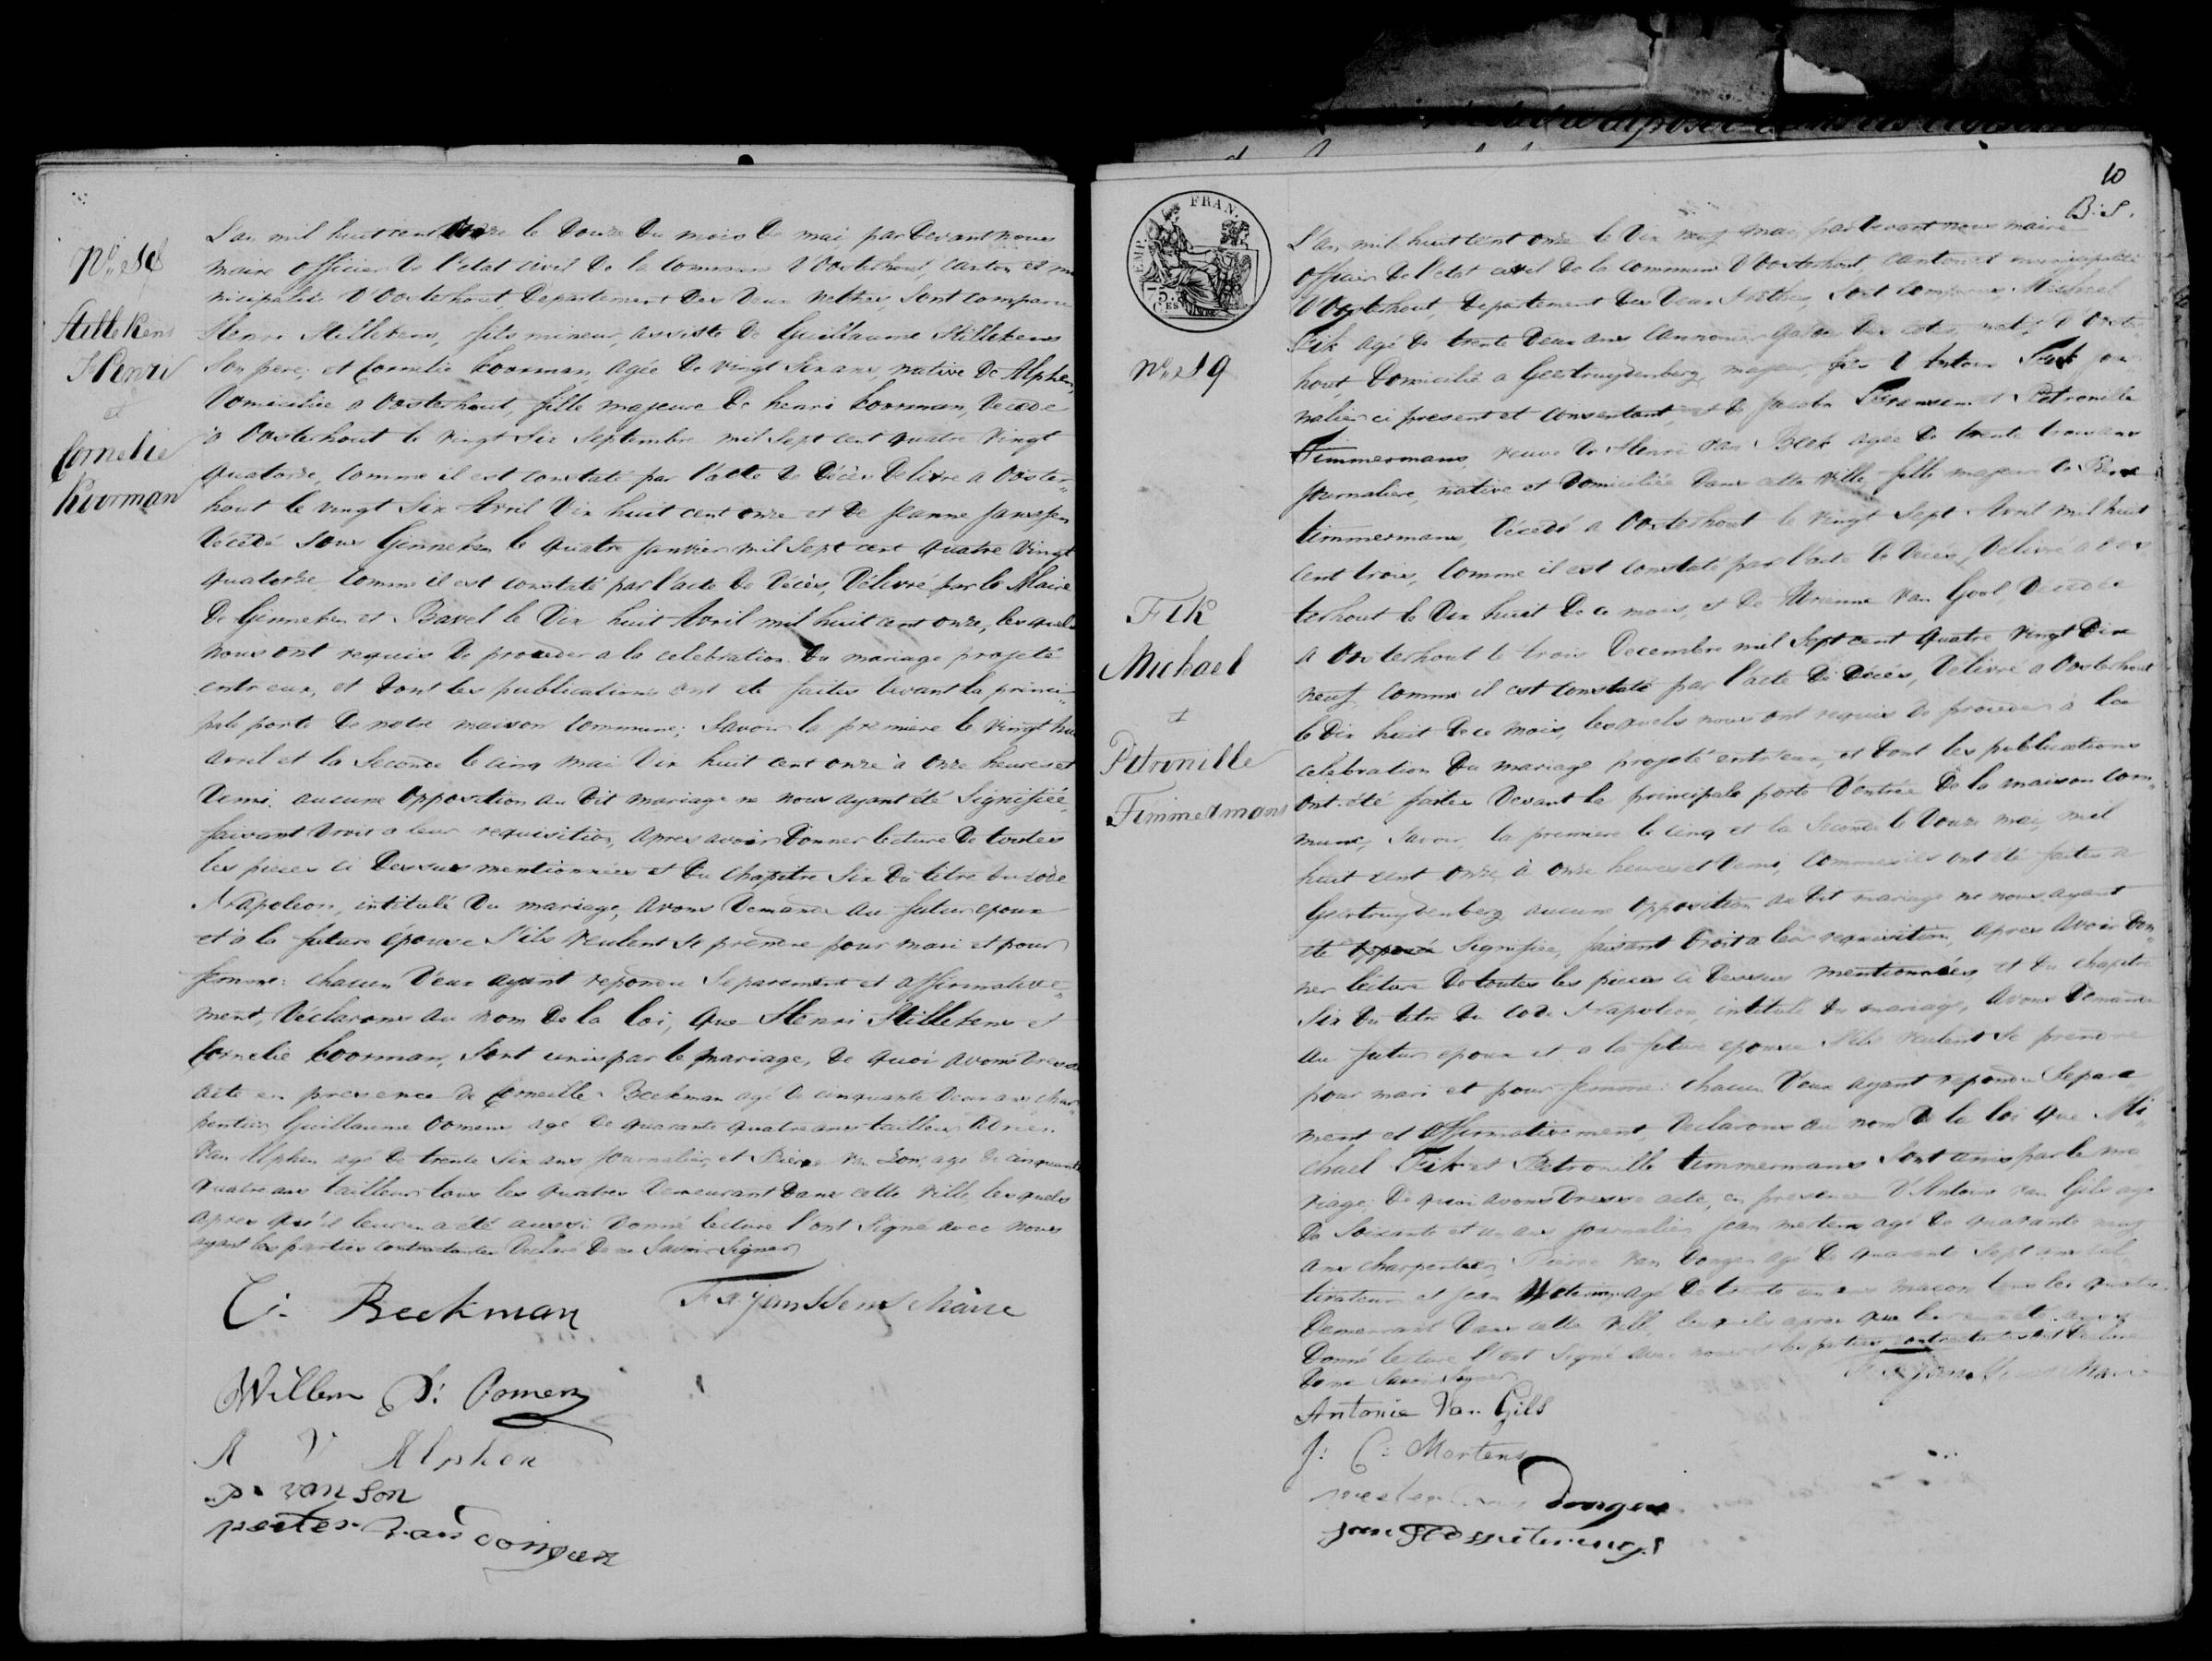 Nº 18
Stillekens
Henri
et
Cornelie
Koorman
L'an mil huit cent onze le douze du mois de mai par devant nous
maire officier de l'etat civil de la commune d'Oosterhout, canton et mu
nicipalité d'Oosterhout, Departement des deux nethes, sont comparu
Henri Stillekens, fils mineur, assisté de Guillaume Stillekens
son pere; et Cornelie Koorman, agée de vingt six ans, native de Alphen,
domiciliée a Oosterhout, fille majeure de henri koorman, decedé
à Oosterhout le vingt six Septembre mil sept cent quatre vingt
quatorze, comme il est constaté par l'acte de décès délivré a Ooster„
hout le vingt six Avril dix huit cent onze et de Jeanne Janssen
décédé sous Ginneken le quatre janvier mil sept cent quatre vingt
quatorze comme il est constaté par l'acte de décès, délivré par le Maire
de Ginneken et Bavel le dix huit Avril mil huit cent onze, les quels
nous ont requis de proceder a la celebration du mariage projeté
entre eux, et dont les publications ont ete faites devant la princi„
pale porte de notre maison commune; savoir la premiere le vingt huit
avril et la seconde le cinq mai dix huit cent onze à onze heures et
demi. aucune opposition au dit mariage ne nous ayant été signifiée,
faisant droit a leur requisition, apres avoir donner lecture de toutes
les pieces ci dessus mentionnées et du chapitre six du titre du code
Napoleon, intitulé du mariage, avons demandé au futur epoux
et à la future épouse s'ils veulent se prendre pour mari et pour
femme: chacun d'eux ayant repondu separement et affirmative„
ment, déclarons au nom de la loi, que Henri Stillekens et
Cornelie koorman, sont unis par le mariage, de quoi avons dressé
acte en presence de Corneille Beekman agé de cinquante deux ans char„
pentier, Guillaume Oomens agé de quarante quatre ans tailleur, Adrien
Van Alphen agé de trente six ans journalier, et Pierre van Zon, agé de cinquante
quatre ans tailleur tous les quatres demeurant dans cette ville, les quels
apres qu'il leur en a été aussi donné lecture l'ont signé avec nous
ayant les parties contractantes declaré de ne savoir signer
C: Beekman
F x Janssens Maire
Willem P: Oomens
A V Alphen
P. van Son
peeter van dongen
10
B: S.
FRAN.
Nº 19
Fik
Michael
et
Petronille
Timmermans
L'an mil huit cent onze le dix neuf mai, par devant nous maire
officier de l'etat civil de la commune d'Oosterhout, canton et municipalité
d'Oosterhout, departement des deux Nethes, sont comparus, Michael
Fik agé de trente deux ans cannonier garde des cotes, natif d'Ooster
hout, domicilié a Geertruydenberg, majeur, fils d'Antoine Fik jour
nalier ci present et consentant, et de Jacoba Fransen et Petronille
Timmermans, veuve de Henri van Beek agée de trente trois ans
journaliere, native et domiciliée dans cette ville, fille majeure de
timmermans, décédé a Oosterhout le vingt sept Avril mil huit
cent trois, comme il est constaté par l'acte de décès, delivré a Oos
terhout le dix huit de ce mois, et de Adrienne Van Gool, decedée
a Oosterhout le trois Decembre mil sept cent quatre vingt dix
neuf, comme il est constaté par l'acte de décès, delivré a Oosterhout
le dix huit de ce mois, lesquels nous ont requis de proceder à la
celebration du mariage projeté entr'eux, et dont les publications
ont été faites devant la principale porte d'entrée de la maison com„
mune, savoir, la premiere le cinq et la seconde le douze mai, mil
huit cent onze, à onze heures et demi, commes ils ont été faites a
Geertruydenberg aucune opposition au dit mariage ne nous ayant
été signifiée, faisant droit a leur requisition, apres avoir don„
ner lecture de toutes les pieces ci dessus mentionnées, et du chapitre
six du titre du code Napoleon, intitulé du mariage, avons demandé
au futur epoux et a la future epouse s'ils veulent se prendre
pour mari et pour femme: chacun d'eux ayant repondu separe
ment et affirmativement, declarons au nom de la loi que Mi„
chael Fik et Petronille timmermans sont unis par le ma
riage; de quoi avons dressé acte, en presence d'Antoine van Gils agé
de soixante et un ans journalier, jean mertens agé de quarante neuf
ans charpentier, Pierre van Dongen agé de quarante sept ans cul
tivateur et jean agé de trente un ans maçon tous les quatre
demeurant dans cette ville, lesquels apres que leur en a été aussi
donné lecture l'ont signé avec nous et les parties contractantes ont declaré
de ne savoir signer
F x Janssens Maire
Antonie Van Gils
J: C: Mertens
peeter van dongen